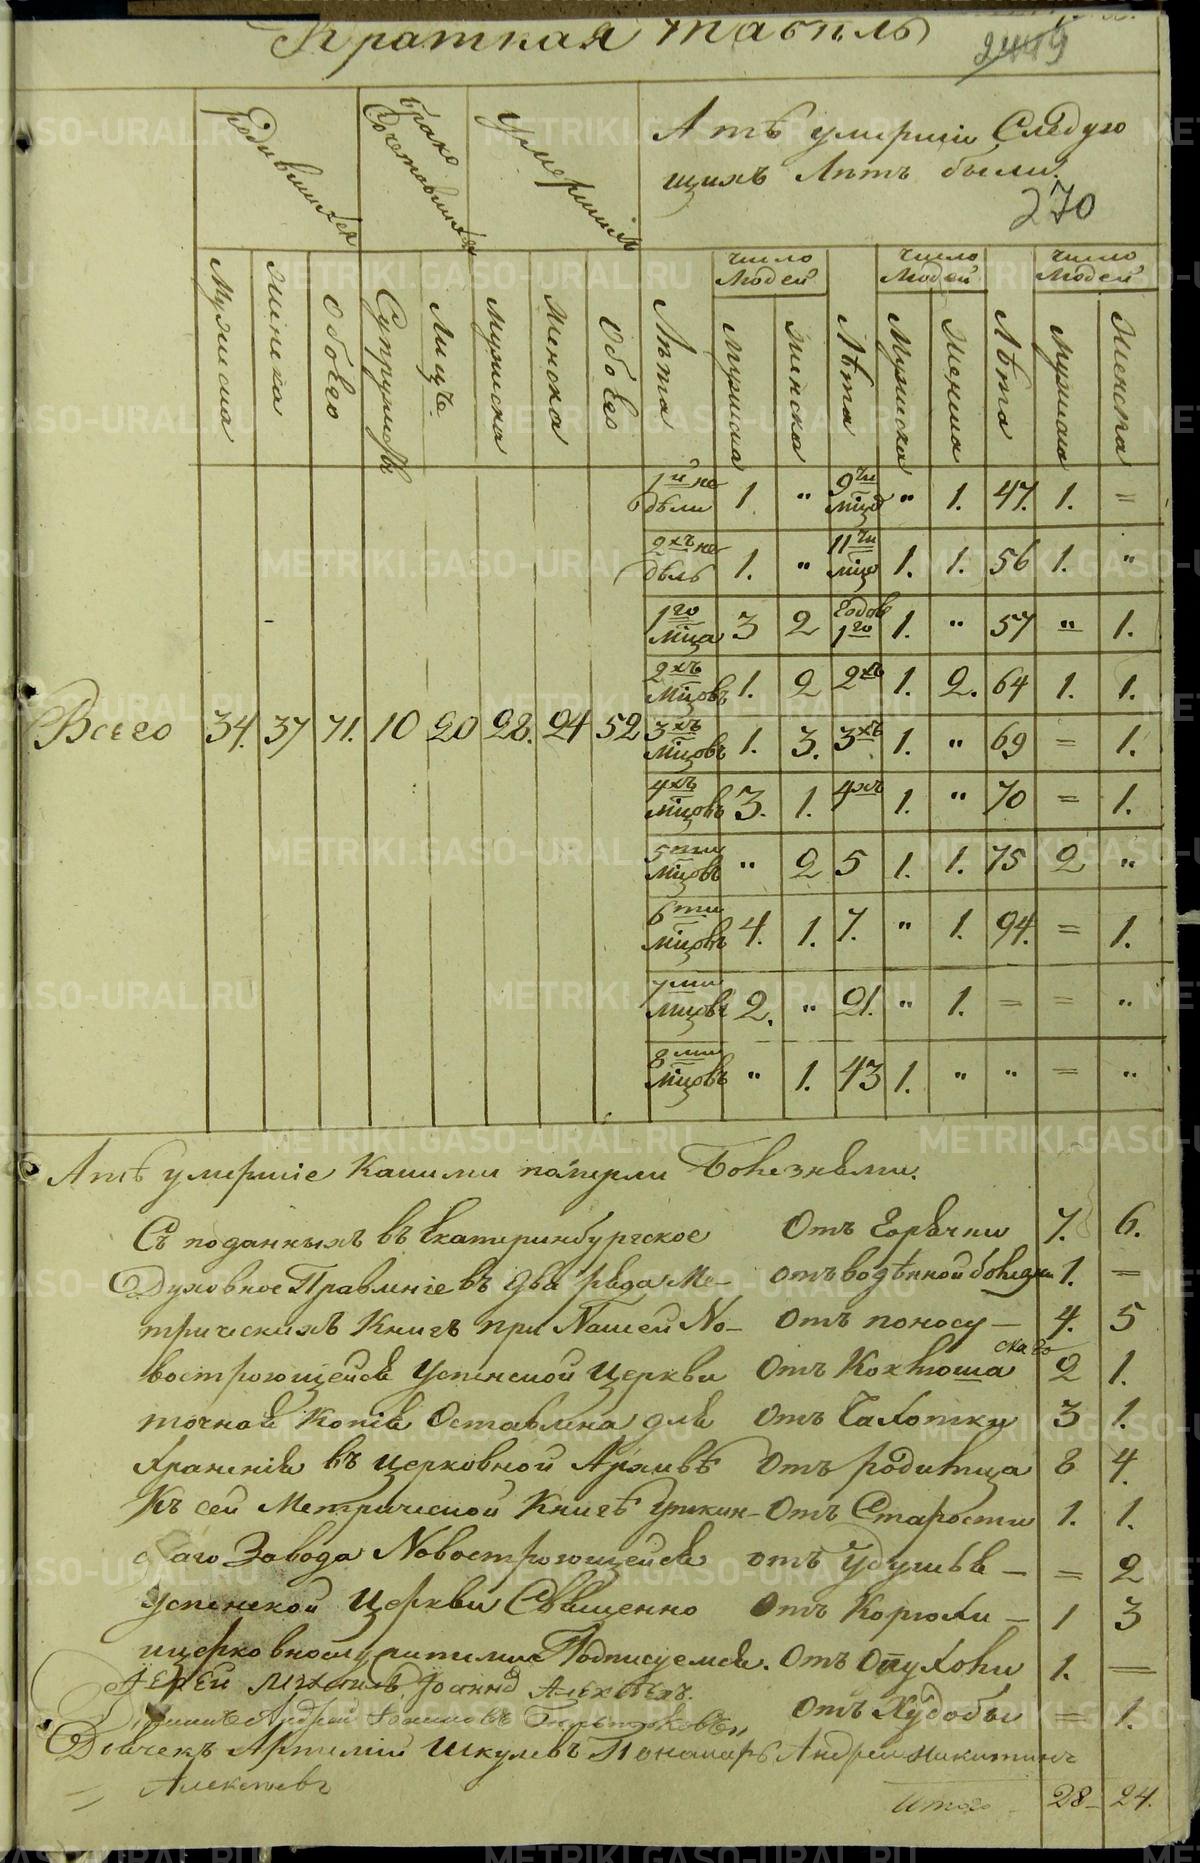 Краткая табѣль
2449
родившихся
браком
Сочетавшихся
умершихъ
А тѣ умершiи Следую
щихъ лѣтъ были.
270
Мужеска
Женска
Обоего
Супружествъ
Лицъ
Мужеска
Женска
Обоего
Лѣта
число
людей
Мужеска
Женска
Лѣта
число
людей
Мужеска
Женска
Лѣта
число
людей
Мужеска
Женска
1й не
дѣли 1. " 9ти
мцъ " 1. 47. 1. =
2хъ не
дѣль 1. " 11ти
мцъ 1. 1. 56 1. "
1го
мца 3 2 Годов
1го 1. " 57 " 1.
2хъ
мцовъ 1. 2 2хъ 1. 2. 64 1. 1.
Всего 34. 37 71. 10 20 28. 24 52
3хъ
мцовъ 1. 3. 3хъ 1. " 69 = 1.
4хъ
мцовъ 3. 1. 4хъ 1. " 70 = 1.
5ти
мцовъ " 2 5 1. 1. 75 2 "
6ти
мцовъ 4. 1. 7. " 1. 94. = 1.
7ми
мцовъ 2. " 21. " 1. = = "
8ми
мцовъ " 1. 43 1. " " = "
А тѣ умершiе Какими померли Болезнями.
Съ поданныхъ въ Екатеринбургское
Духовное Правленiе въ два ряда Ме-
трическихъ Книгъ при Нашей Но-
востроющейся Успенской Церкви
точная Копiя Оставлена для
Храненiя въ церковной Архивѣ
Къ сей Метрической Книгѣ Уткин-
скаго Завода Новостроющейся
Успенской Церкви Священно
и церковнослужители Подписуемся.
Iерей Михаилъ Iоаннъ Алексѣевъ.
Дьячекъ Артемiй Шкулевъ Понамарь Андрей Никитинъ
Алексеевъ
Отъ Горячки 7. 6.
отъ водяной болезни 1. =
Отъ поносу — 4. 5
Отъ Коклюша 2 1.
скаго
Отъ Чахотки 3 1.
Отъ родимца 8 4.
Отъ Старости 1. 1.
отъ Удушья — = 2
Отъ Корюхи — 1 3
Отъ Опухоли 1. =
Отъ Худобы = 1.
Итого 28 — 24.
METRIKI.GASO-URAL.RU